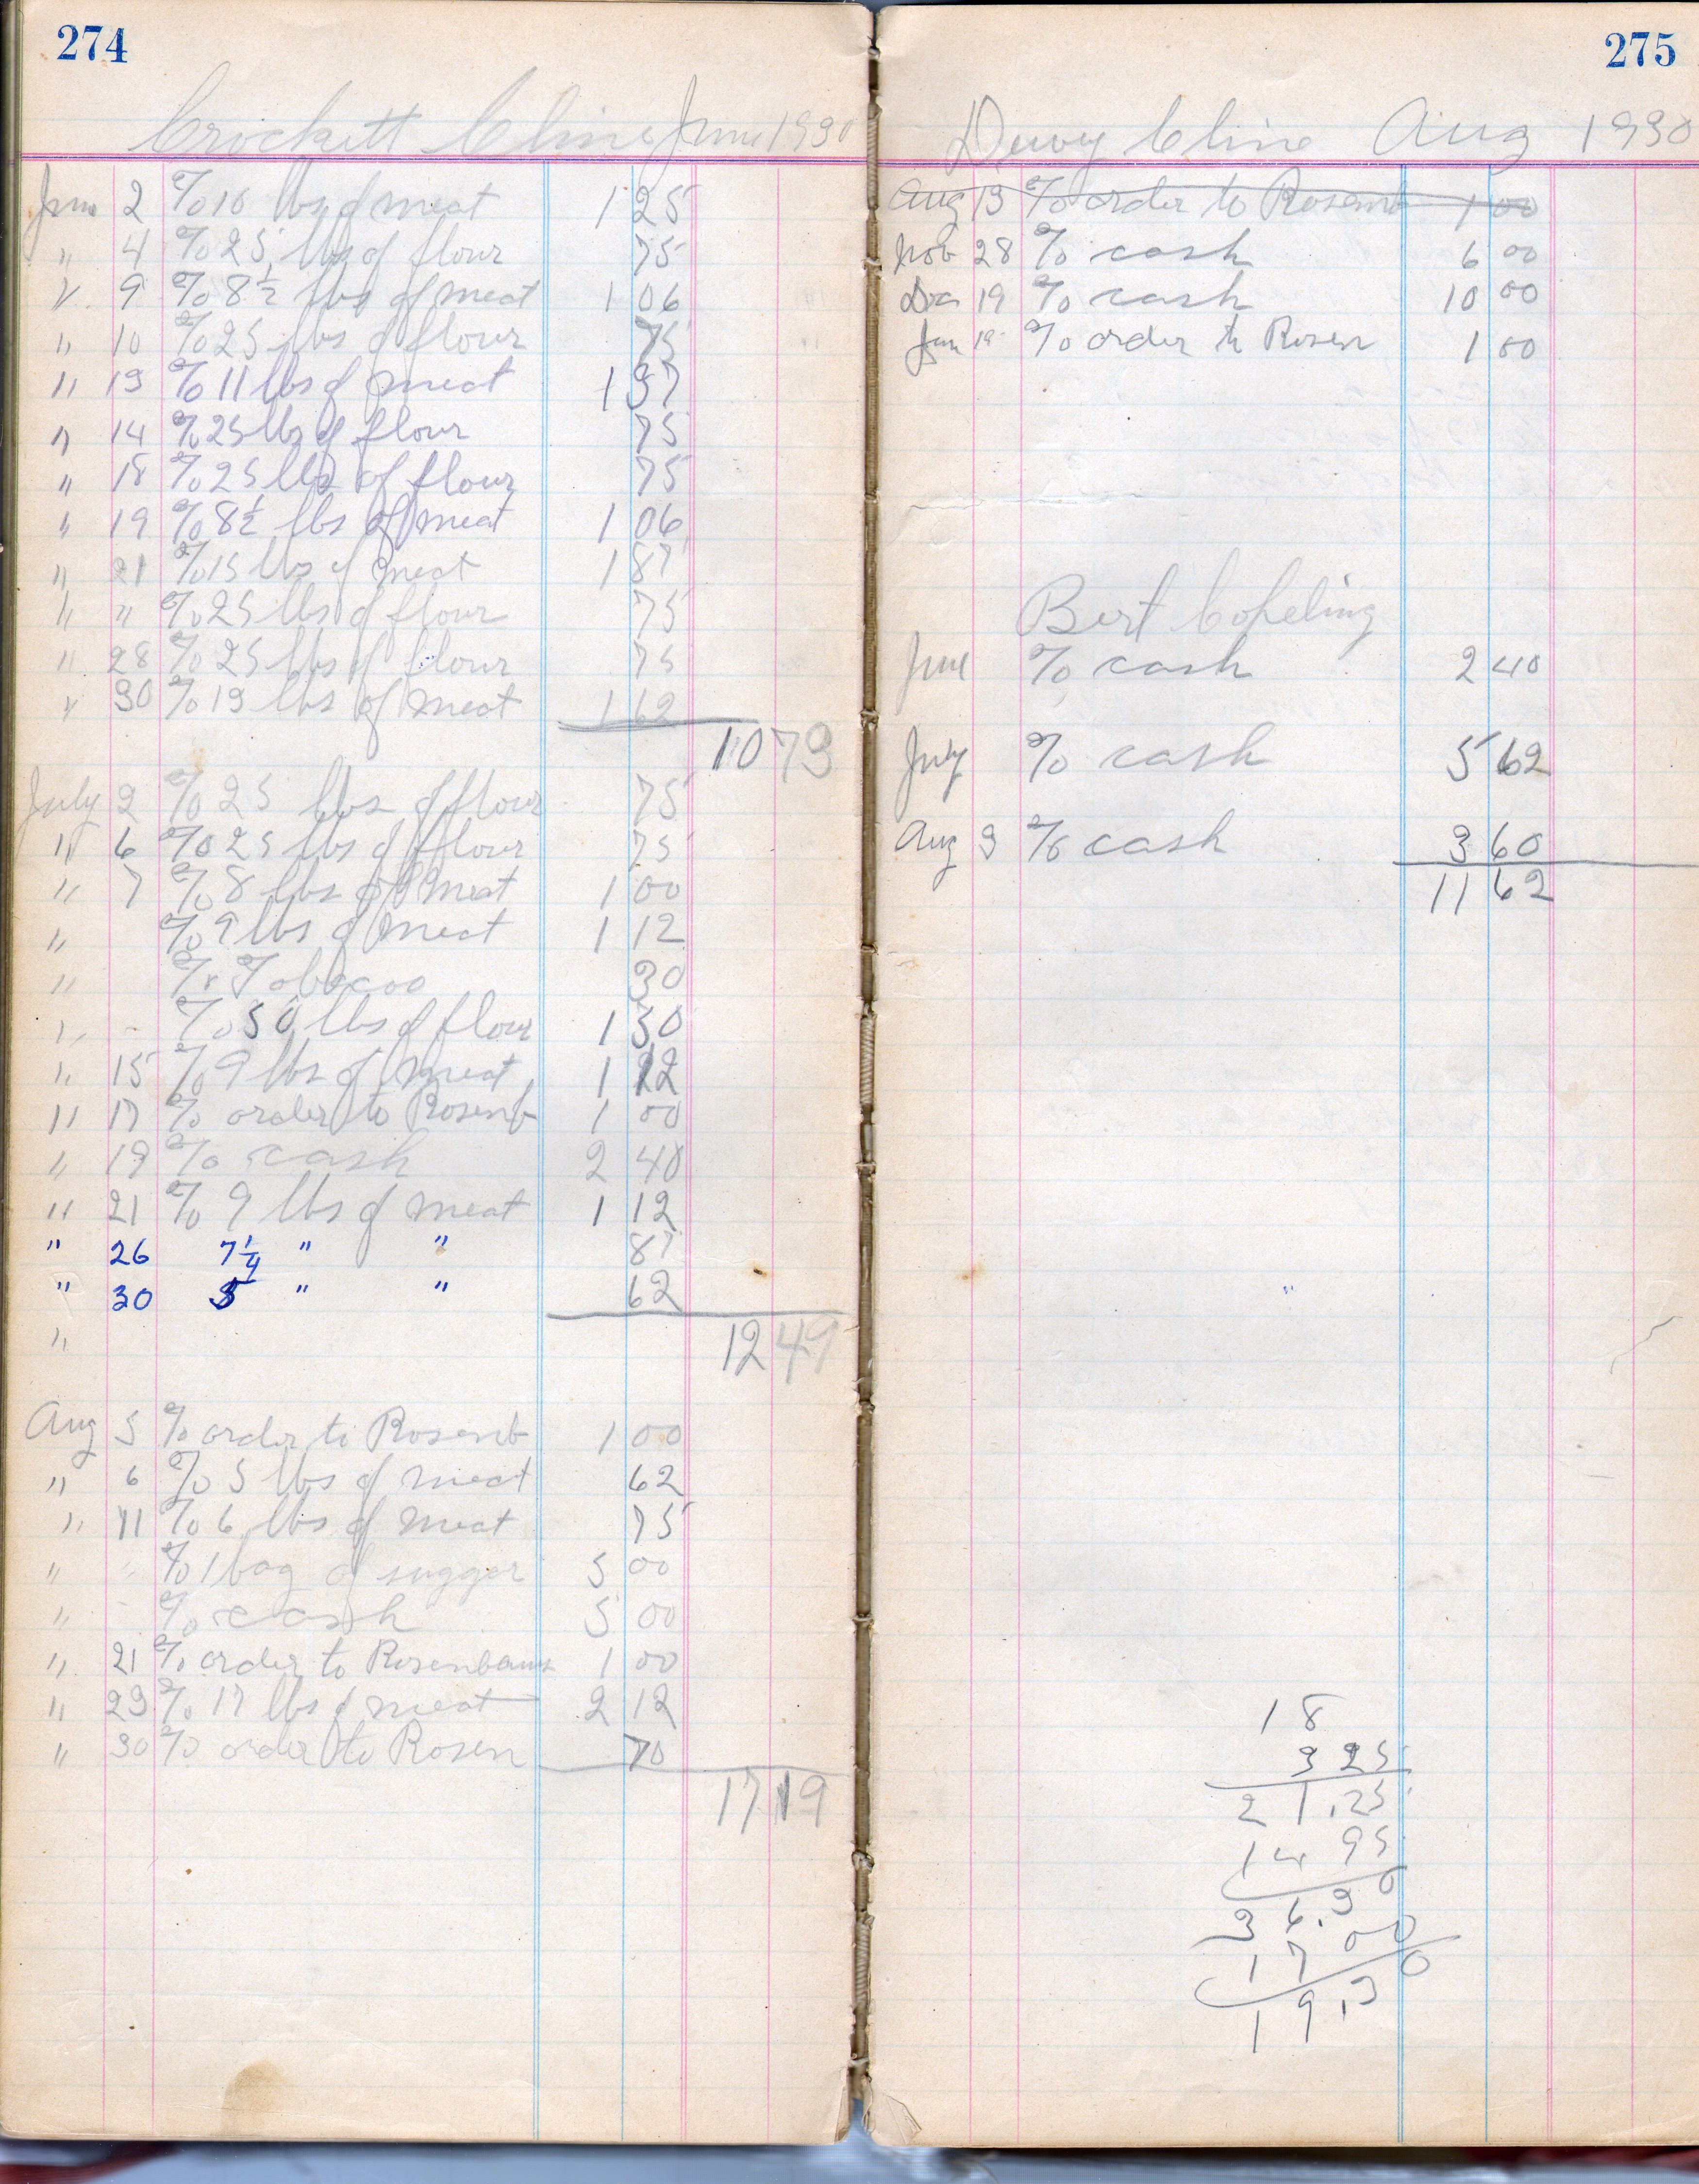 274
Crockett Cline June 1930
June 2 % 10 lbs of meat 1 25
" 4 % 25 lbs of flour 75
" 9 % 8½ lbs of meat 1 06
" 10 % 25 lbs of flour 75
" 13 % 11 lbs of meat 1 37
" 14 % 25 lbs of flour 75
" 18 % 25 lbs of flour 75
" 19 % 8½ lbs of meat 1 06
" 21 % 15 lbs of meat 1 87
" " % 25 lbs of flour 75
" 28 % 25 lbs of flour 75
" 30 % 13 lbs of meat 1 62
10 73
July 2 % 25 lbs of flour 75
" 6 % 25 lbs of flour 75
" 7 % 8 lbs of meat 1 00
" % 9 lbs of meat 1 12
" % Tobacoo 30
" % 50 lbs of flour 1 50
" 15 % 9 lbs of meat 1 12
" 17 % order to Rosenb 1 00
" 19 % cash 2 40
" 21 % 9 lbs of meat 1 12
" 26 7¼ " " 87
" 30 5 " " 62
12 49
"
Aug 5 % order to Rosenb 1 00
" 6 % 5 lbs of meat 62
" 11 % 6 lbs of meat 75
" " % 1 bag of sugger 5 00
" - % cash 5 00
" 21 % order to Rosenbaum 1 00
" 23 % 17 lbs of meat 2 12
" 30 % order to Rosen 70
17 19
275
Dewy Cline Aug 1930
Aug 13 % order to Rosenb 1 00
Nob 28 % cash 6 00
Dec 19 % cash 10 00
Jan 19 % order to Rosen 1 00
Bert Copeling
June % cash 2 40
July % cash 5 62
Aug 9 % cash 3 60
11 62
"
18
3 25
21.25
14 95
36.30
17 00
19.30